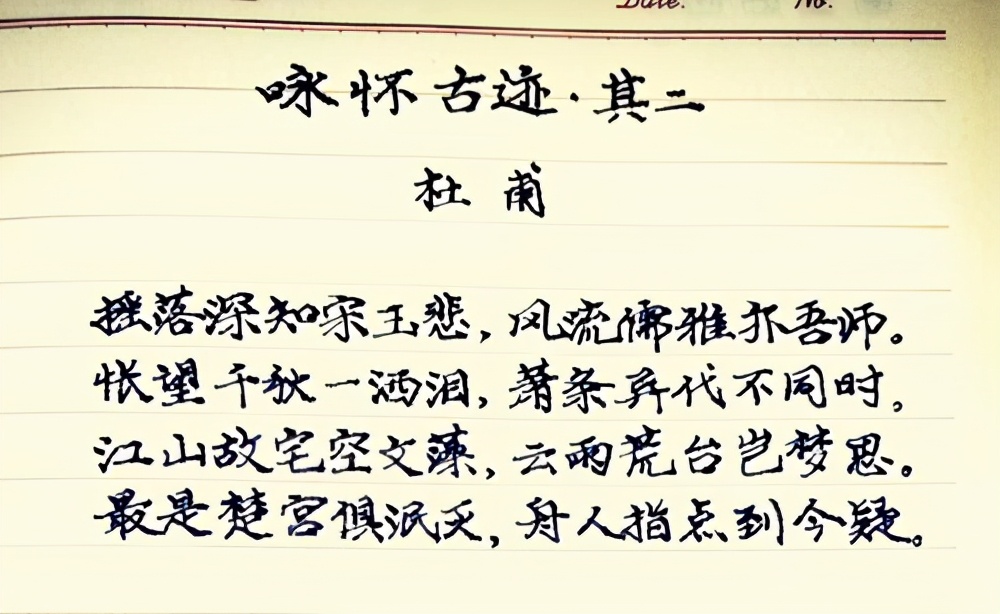 Date.    No.
咏怀古迹·其二
杜甫
摇落深知宋玉悲，风流儒雅亦吾师。
怅望千秋一洒泪，萧条异代不同时。
江山故宅空文藻，云雨荒台岂梦思。
最是楚宫俱泯灭，舟人指点到今疑。